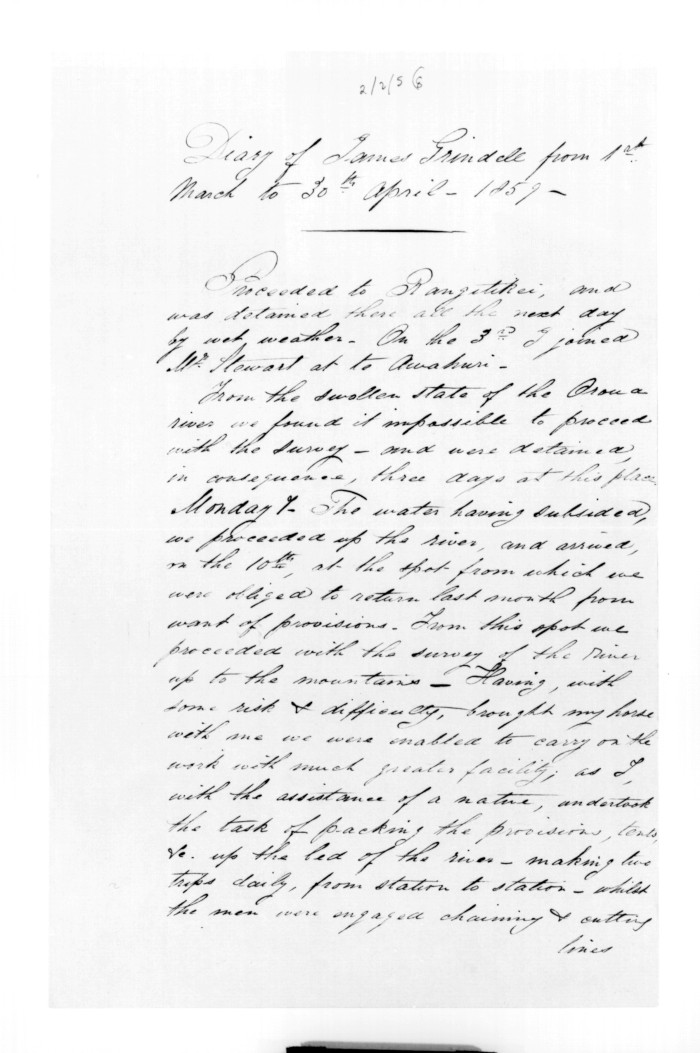 2/2/56
Diary of James Grindell from 1st
March to 30th April - 1859 -
Proceeded to Rangitikei, and
was detained there all the next day
by wet weather - On the 3rd I joined
Mr. Stewart at te Awahuri -
From the swollen state of the Oroua
river we found it impossible to proceed
with the survey - and were detained,
in consequence, three days at this place
Monday 7 - The water having subsided,
we proceeded up the river, and arrived,
on the 10th, at the spot from which we
were obliged to return last month from
want of provisions. From this spot we
proceeded with the survey of the river
up to the mountains - Having, with
some risk & difficulty, brought my horse
with me we were enabled to carry on the
work with much greater facility; as I,
with the assistance of a native, undertook
the task of packing the provisions, tents,
&c. up the bed of the river - making two
trips daily, from station to station - whilst
the men were engaged chaining & cutting
lines